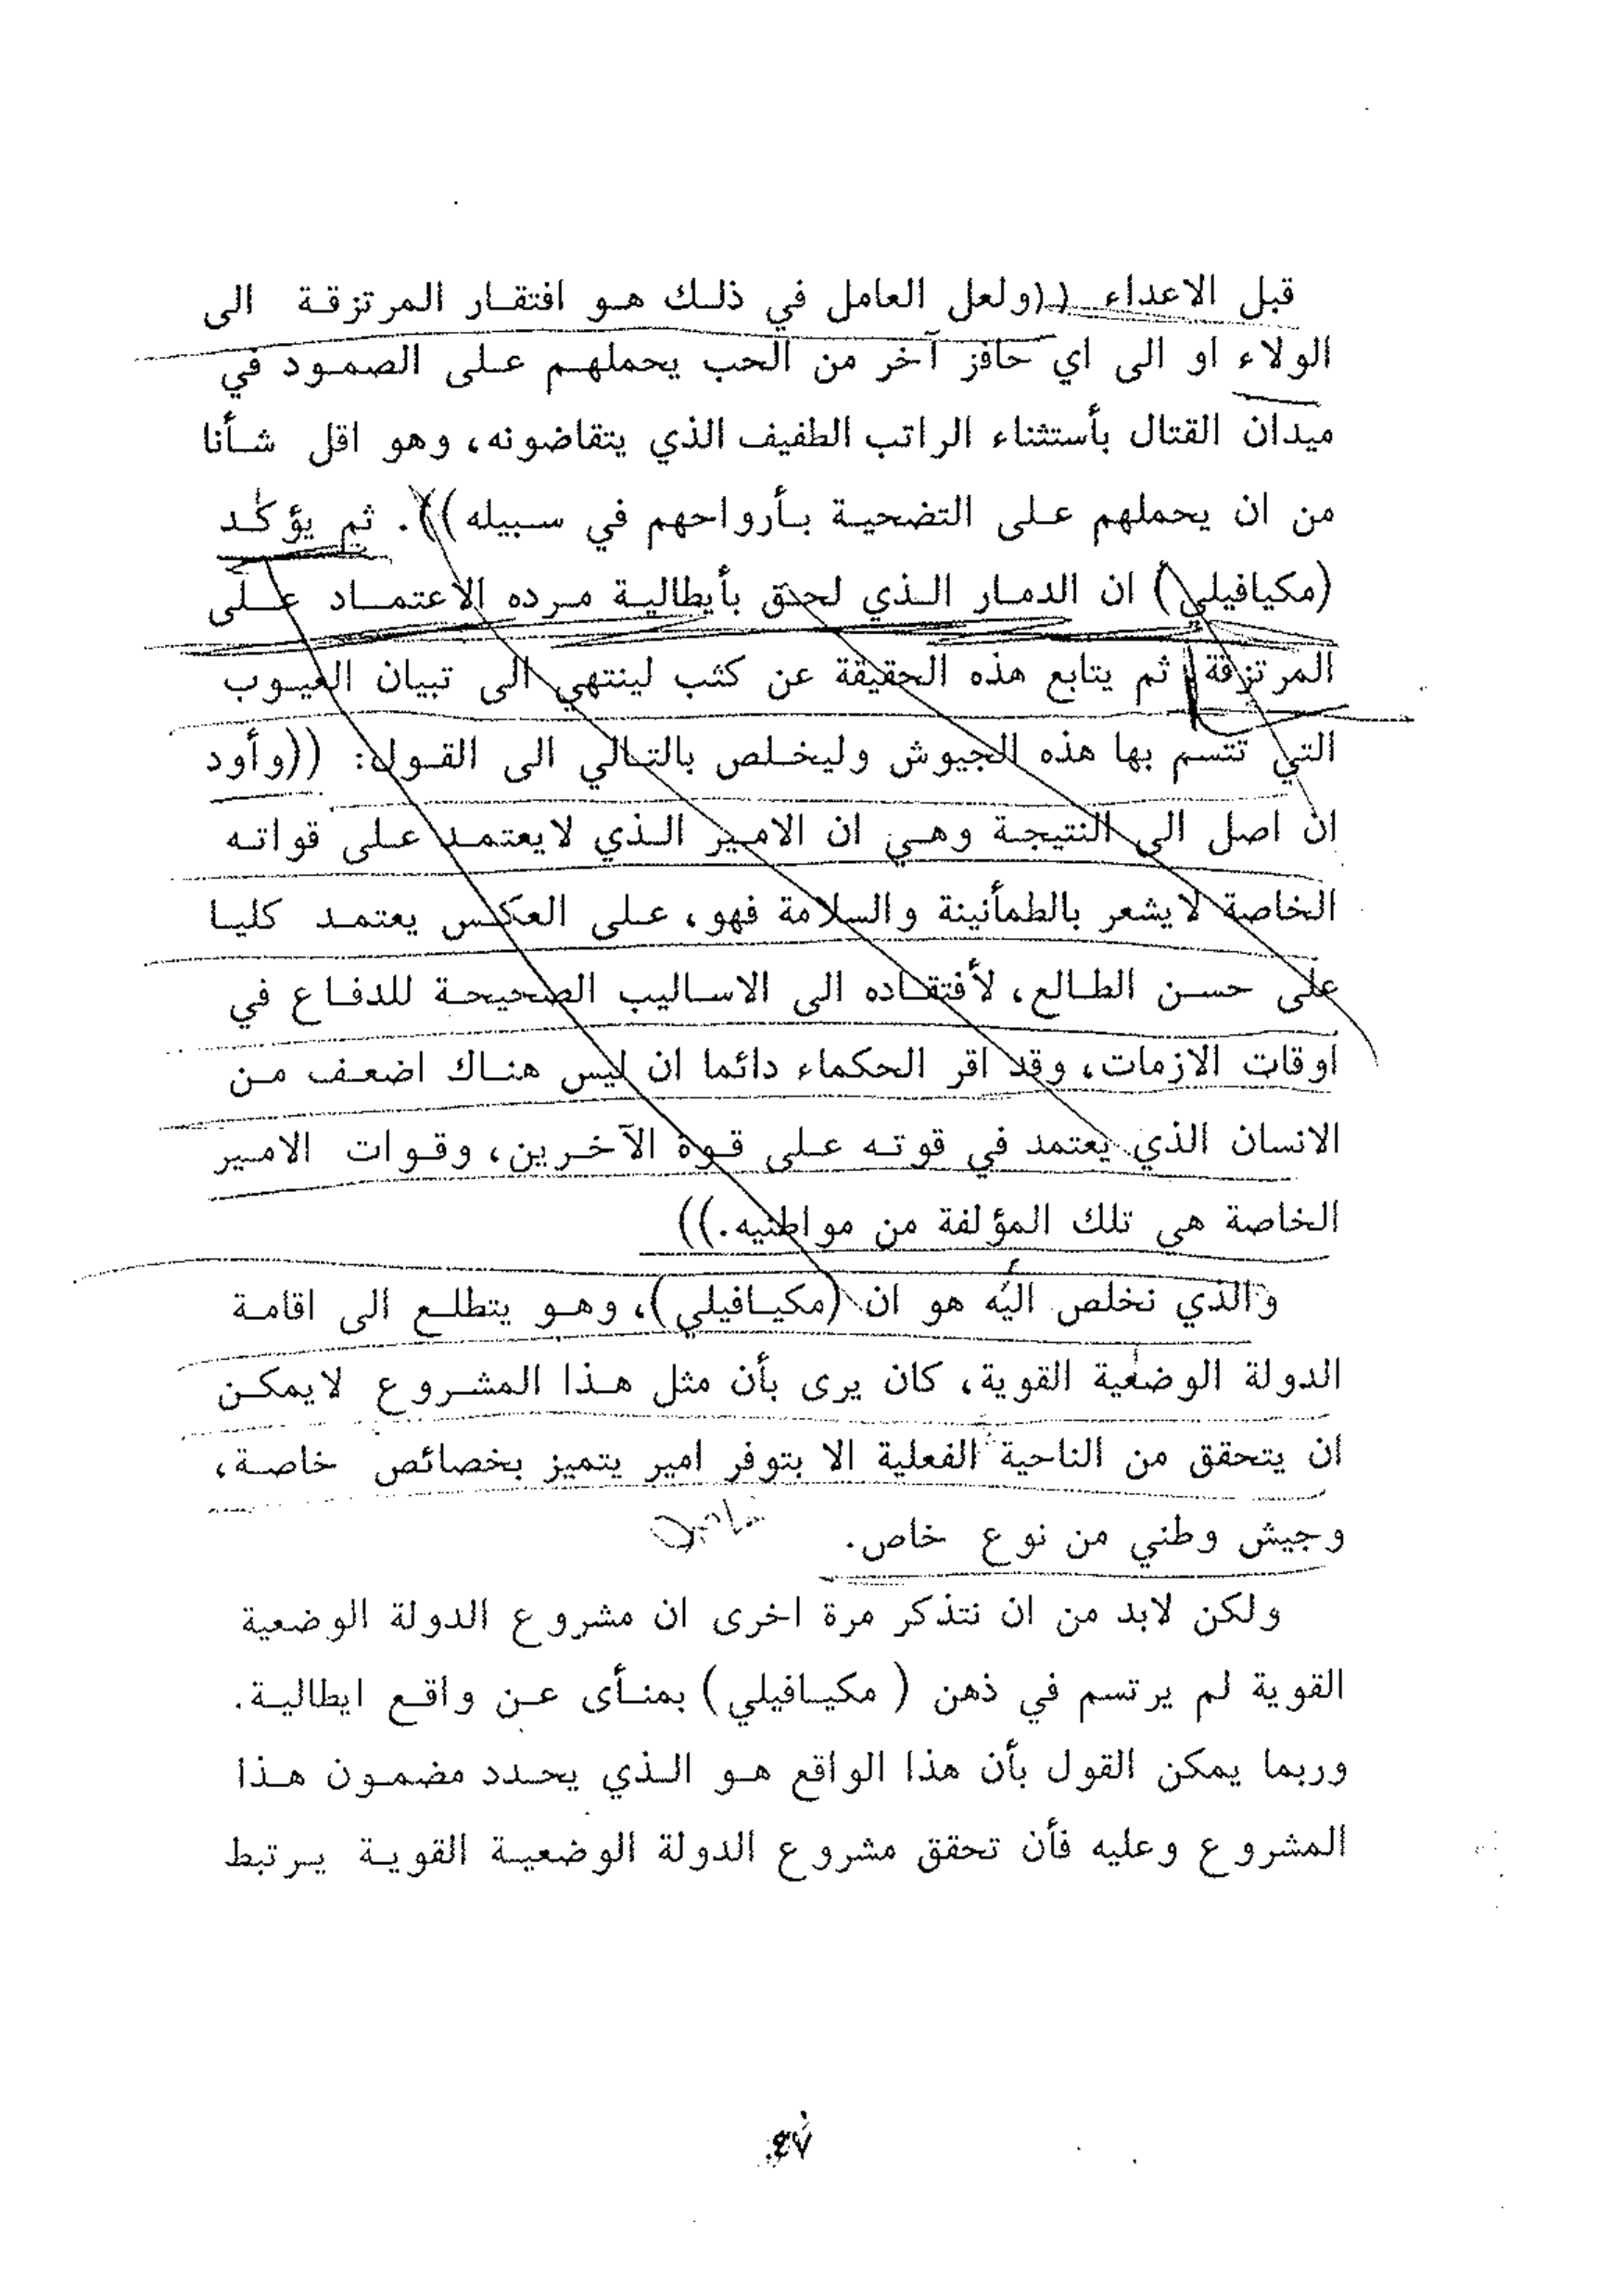 قبل الاعداء ((ولعل العامل في ذلك هو افتقار المرتزقة الى
الولاء او الى اي حافز آخر من الحب يحملهم على الصمود في
ميدان القتال بأستثناء الراتب الطفيف الذي يتقاضونه، وهو اقل شأنا
من ان يحملهم على التضحية بأرواحهم في سبيله)). ثم يؤكد
(مكيافيلي) ان الدمار الذي لحق بأيطالية مرده الاعتماد على
المرتزقة ثم يتابع هذه الحقيقة عن كثب لينتهي الى تبيان العيوب
التي تتسم بها هذه الجيوش وليخلص بالتالي الى القول: ((وأود
ان اصل الى النتيجة وهي ان الامير الذي لايعتمد على قواته
الخاصة لايشعر بالطمأنينة والسلامة فهو، على العكس يعتمد كليا
على حسن الطالع، لأفتقاده الى الاساليب الصحيحة للدفاع في
اوقات الازمات، وقد اقر الحكماء دائما ان ليس هناك اضعف من
الانسان الذي يعتمد في قوته على قوة الآخرين، وقوات الامير
الخاصة هي تلك المؤلفة من مواطنيه.))
والذي نخلص اليه هو ان (مكيافيلي)، وهو يتطلع الى اقامة
الدولة الوضعية القوية، كان يرى بأن مثل هذا المشروع لايمكن
ان يتحقق من الناحية الفعلية الا بتوفر امير يتميز بخصائص خاصة،
وجيش وطني من نوع خاص.
ولكن لابد من ان نتذكر مرة اخرى ان مشروع الدولة الوضعية
القوية لم يرتسم في ذهن (مكيافيلي) بمنأى عن واقع ايطالية.
وربما يمكن القول بأن هذا الواقع هو الذي يحدد مضمون هذا
المشروع وعليه فأن تحقق مشروع الدولة الوضعية القوية يرتبط
٤٧